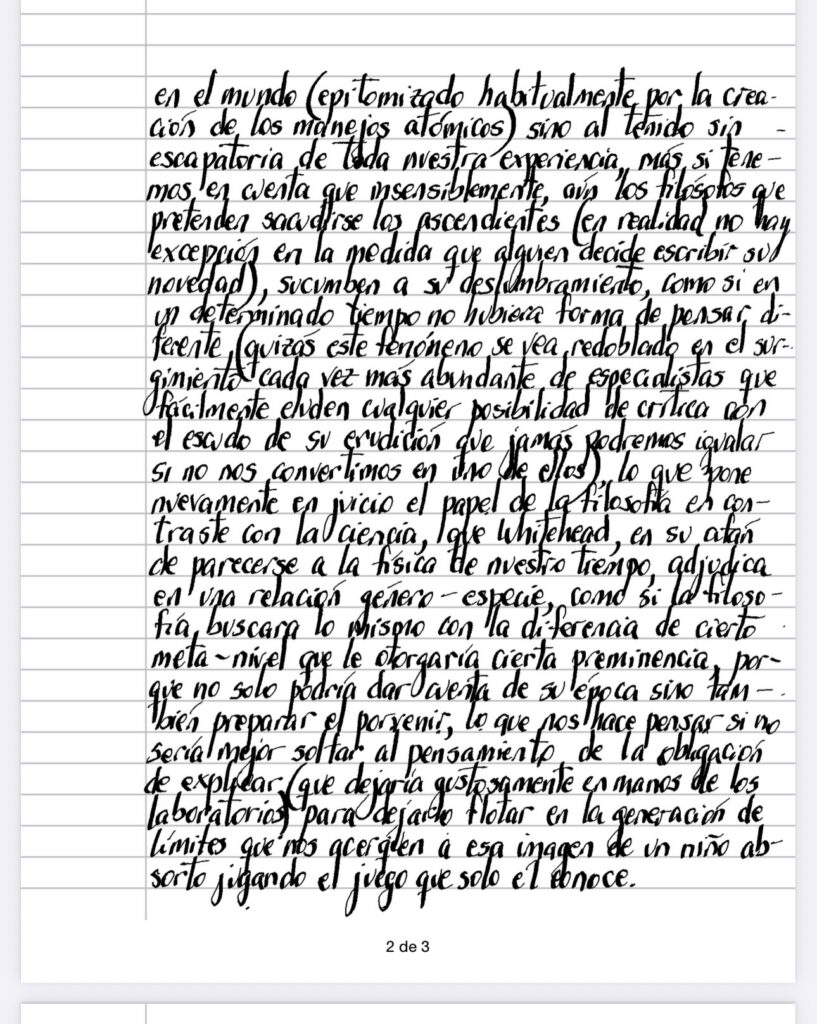 en el mundo (epitomizado habitualmente por la crea-
ción de los manejos atómicos) sino al teñido sin -
escapatoria de toda nuestra experiencia, más si tene-
mos en cuenta que insensiblemente, aún los filósofos que
pretenden sacudirse los ascendientes (en realidad no hay
excepción en la medida que alguien decide escribir su
novedad), sucumben a su deslumbramiento, como si en
un determinado tiempo no hubiera forma de pensar di-
ferente, (quizás este fenómeno se vea redoblado en el sur-
gimiento cada vez más abundante de especialistas que
fácilmente eluden cualquier posibilidad de crítica con
el escudo de su erudición que jamás podremos igualar
si no nos convertimos en uno de ellos), lo que pone
nuevamente en juicio el papel de la filosofía en con-
traste con la ciencia, que Whitehead, en su afán
de parecerse a la física de nuestro tiempo, adjudica
en una relación género-especie, como si la filoso-
fía, buscara lo mismo con la diferencia de cierto
meta-nivel que le otorgaría cierta preminencia, por-
que no solo podría dar cuenta de su época sino tam-
bién preparar el porvenir, lo que nos hace pensar si no
sería mejor soltar al pensamiento de la obligación
de explicar (que dejaría gustosamente en manos de los
laboratorios) para dejarlo flotar en la generación de
límites que nos acerquen a esa imagen de un niño ab-
sorto jugando el juego que solo él conoce.
2 de 3